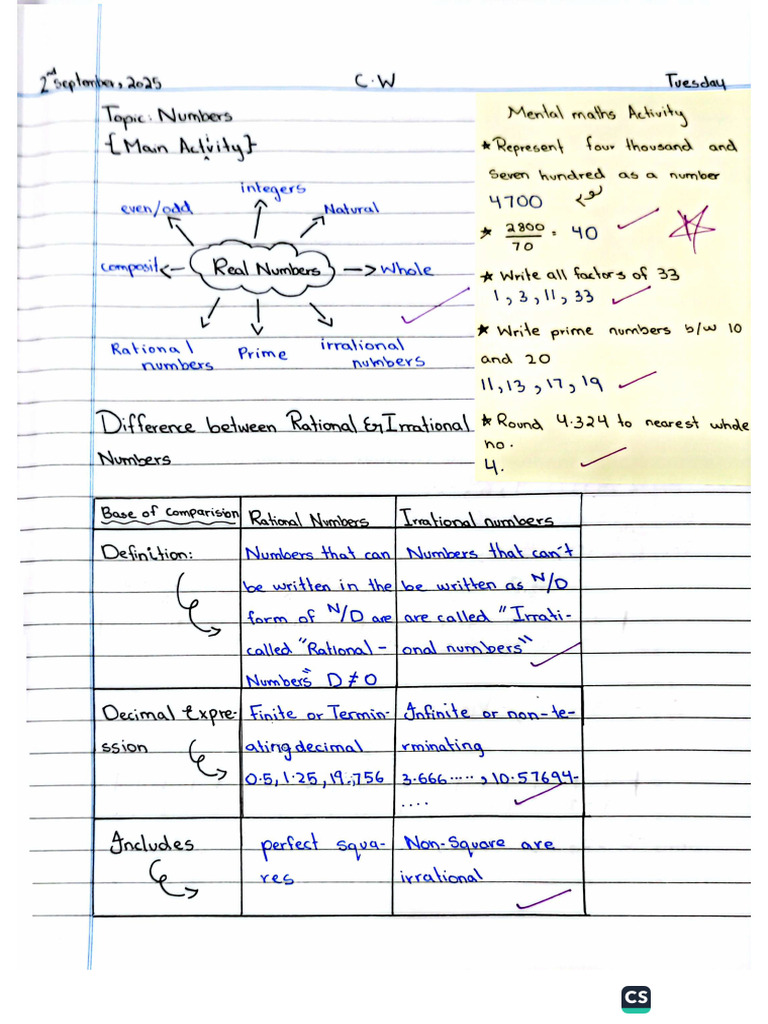 2nd September, 2025 C.W Tuesday
Topic: Numbers
{Main Activity}
integers
even/odd
Natural
composit
Real Numbers
Whole
Rational
numbers
Prime
irrational
numbers
Mental maths Activity
* Represent four thousand and
seven hundred as a number
4700
* 2800/70 = 40
* Write all factors of 33
1, 3, 11, 33
* Write prime numbers b/w 10
and 20
11, 13, 17, 19
* Round 4.324 to nearest whole
no.
4.
Difference between Rational & Irrational
Numbers
Base of comparision
Rational Numbers
Irrational numbers
Definition:
Numbers that can
be written in the
form of N/D are
called "Rational-
Numbers" D ≠ 0
Numbers that can't
be written as N/D
are called "Irrati-
onal numbers"
Decimal Expre-
ssion
Finite or Termin-
ating decimal
0.5, 1.25, 19.756
Infinite or non-te-
rminating
3.666....., 10.57694-
....
Includes
perfect squa-
res
Non-Square are
irrational
CS